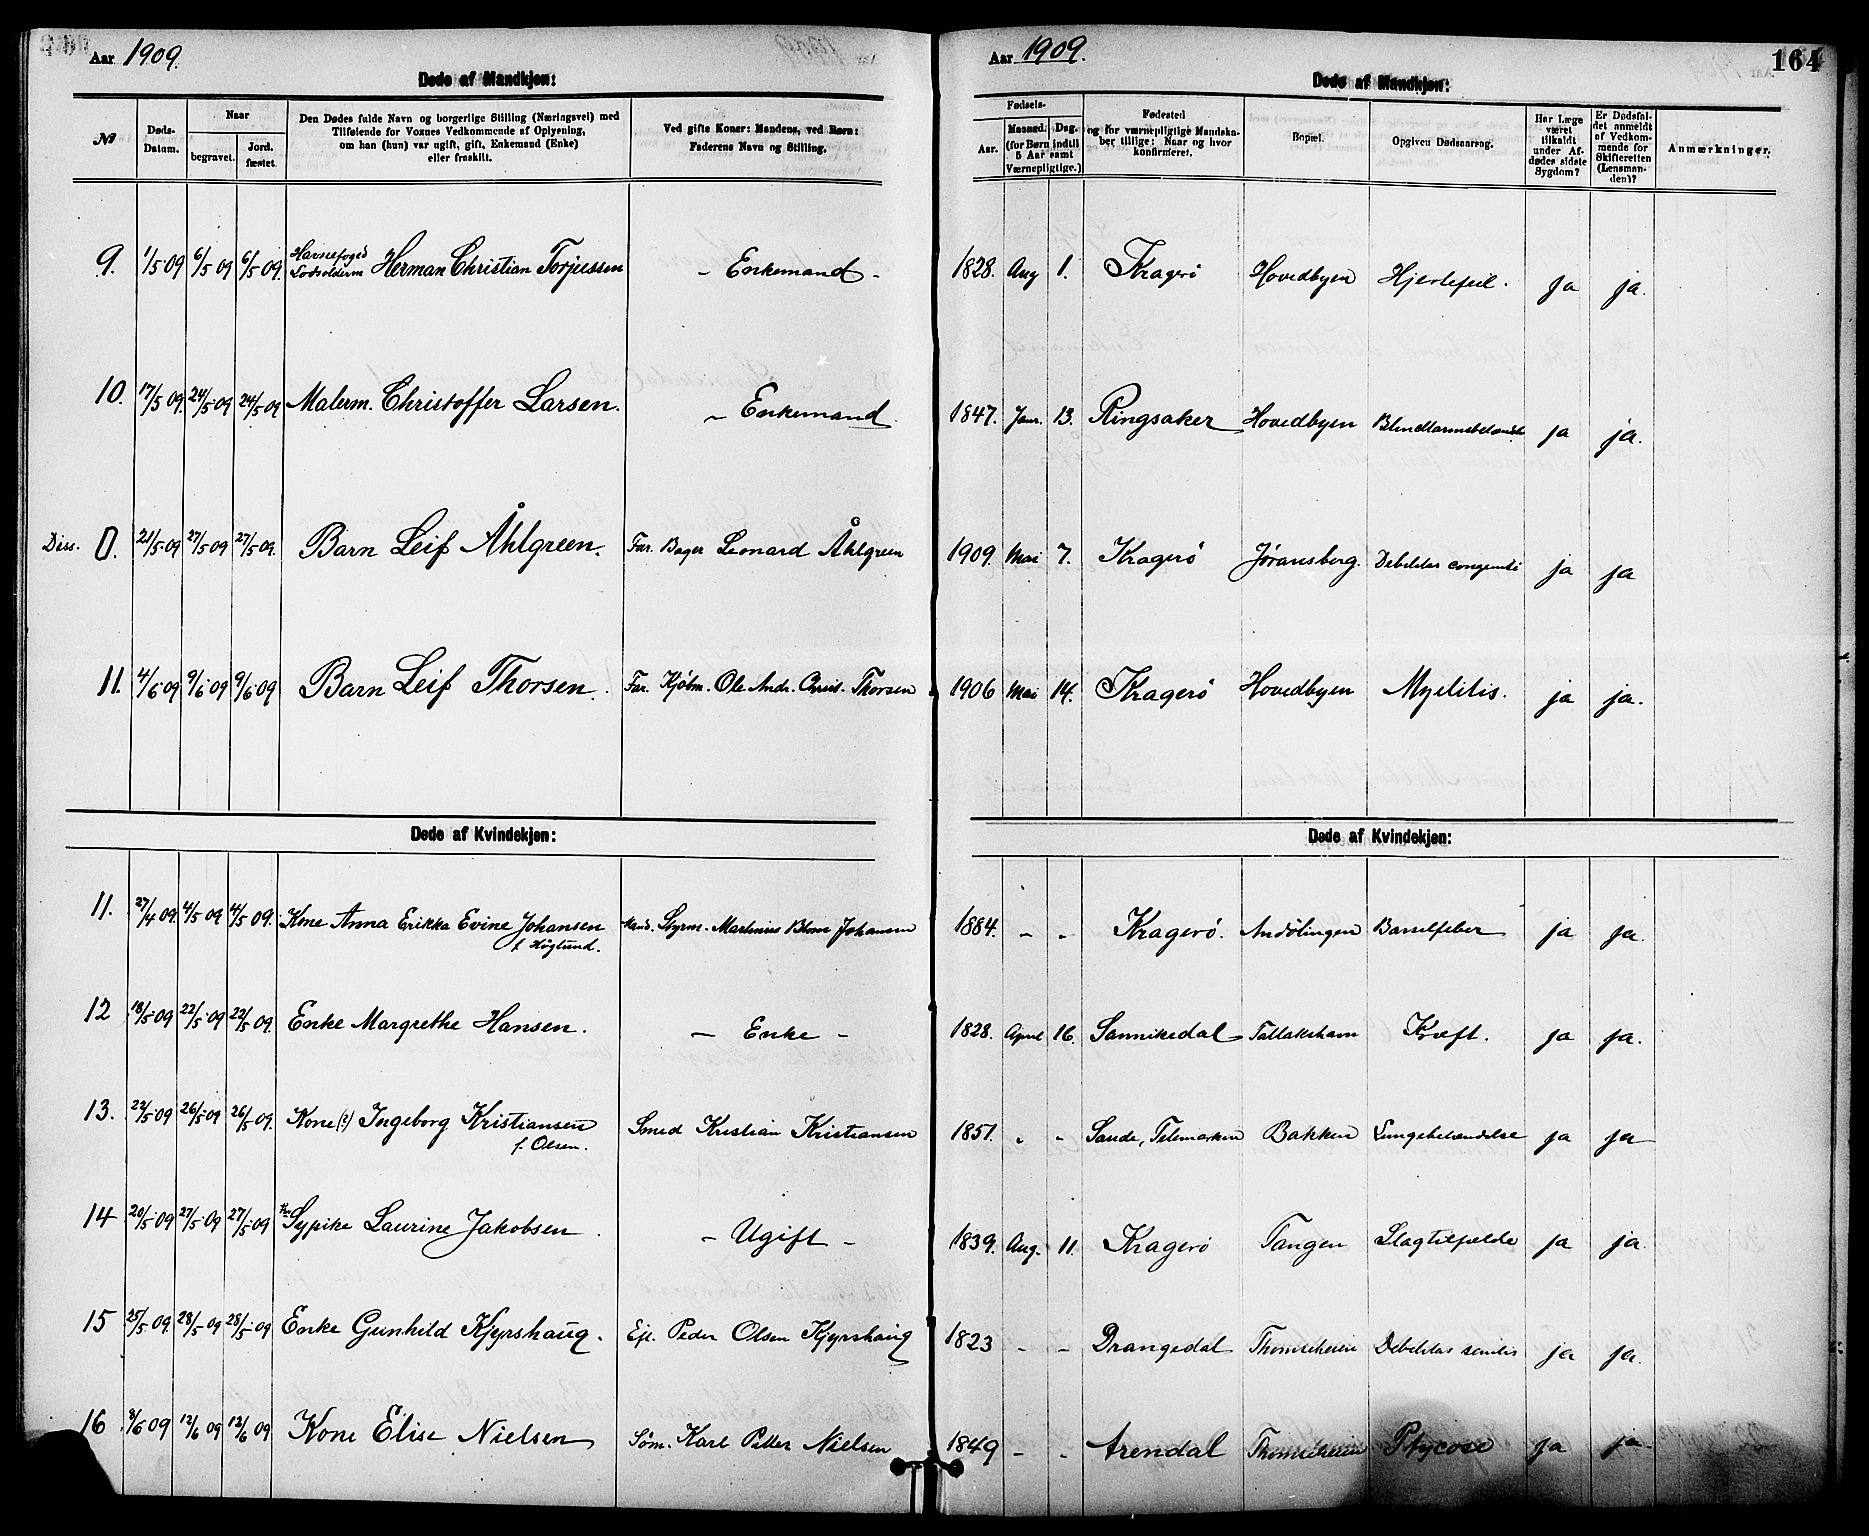 Aar 1909.
Døde af Mandkjøn:
№
Døds-Datum.
Naar
begravet.
Jord-fæstet.
Den Dødes fulde Navn og borgerlige Stilling (Næringsvei) med
Tilføiende for Voxnes Vedkommende af Oplysning,
om han (hun) var ugift, gift, Enkemand (Enke)
eller fraskilt.
Ved gifte Koner: Mandens, ved Børn:
Faderens Navn og Stilling.
9. 1/5 09 6/5 09 6/5 09. Havnefoged Lodsolderm Herman Christian Torjussen - Enkemand -
10. 17/5 09. 24/5 09 24/5 09 Malerm. Christoffer Larsen. - Enkemand
Diss. 0. 21/5 09 27/5 09 27/5 09. Barn Leif Åhlgreen. Far. Bager Leonard Åhlgreen
11. 4/6 09 9/6 09 9/6 09 Barn Leif Thorsen. Far. Kjøbm. Ole Andr. Christ. Thorsen
Døde af Kvindekjøn:
11. 27/4 09. 4/5 09 4/5 09. Kone Anna Erikka Evine Johansen Mand. Styrm. Martinius Blom Johansen
f. Høglund.
12 18/5 09 22/5 09 22/5 09. Enke Margrethe Hansen. - Enke -
13. 22/5 09 26/5 09 26/5 09. Kone (?) Ingeborg Kristiansen Smed Kristian Kristiansen
f. Olsen.
14 20/5 09 27/5 09 27/5 09 Sypike Laurine Jakobsen. - Ugift -
15 25/5 09. 28/5 09 28/5 09 Enke Gunhild Kjyrshaug. Ejl. Peder Olsen Kjyrshaug
16 8/6 09 12/6 09 12/6 09 Kone Elise Nielsen Søm. Karl Petter Nielsen
Aar 1909.
164
Døde af Mandkjøn:
Fødsels-
Aar.
Maaned. Dag.
(for Børn indtil
5 Aar samt
Værnepligtige.)
Fødested
og for værnepligtige Mandska-
ber tillige: Naar og hvor
konfirmeret.
Bopæl.
Opgiven Dødsaarsag.
Har Læge
været
tilkaldt
under Af-
dødes sidste
Sygdom?
Er Dødsfal-
det anmeldt
af Vedkom-
mende for
Skifteretten
(Lensman-
den)?
Anmærkninger.
1828. Aug 1. Kragerö Hovedbyen Hjertefeil. ja ja.
1847. Janr. 13. Ringsaker Hovedbyen ja ja.
1909. Mai 7. Kragerö Jøransberg. Debilitas congenita ja ja
1906 Mai 14. Kragerö Hovedbyen Myelitis. ja ja.
Døde af Kvindekjøn:
1884. - - Kragerö. Andölingen Barselfeber ja ja.
1828. April 16. Sannikedal Tallakshavn Kræft. ja ja.
1851. - - Sande, Telemarken Bakken Lungebetændelse ja ja
1839. Aug. 11. Kragerö Tangen Slagtilfælde ja ja.
1823 - - Drangedal Thomseheien Debilitas senilis ja ja.
1849 - - Arendal Thomseheien ja ja.